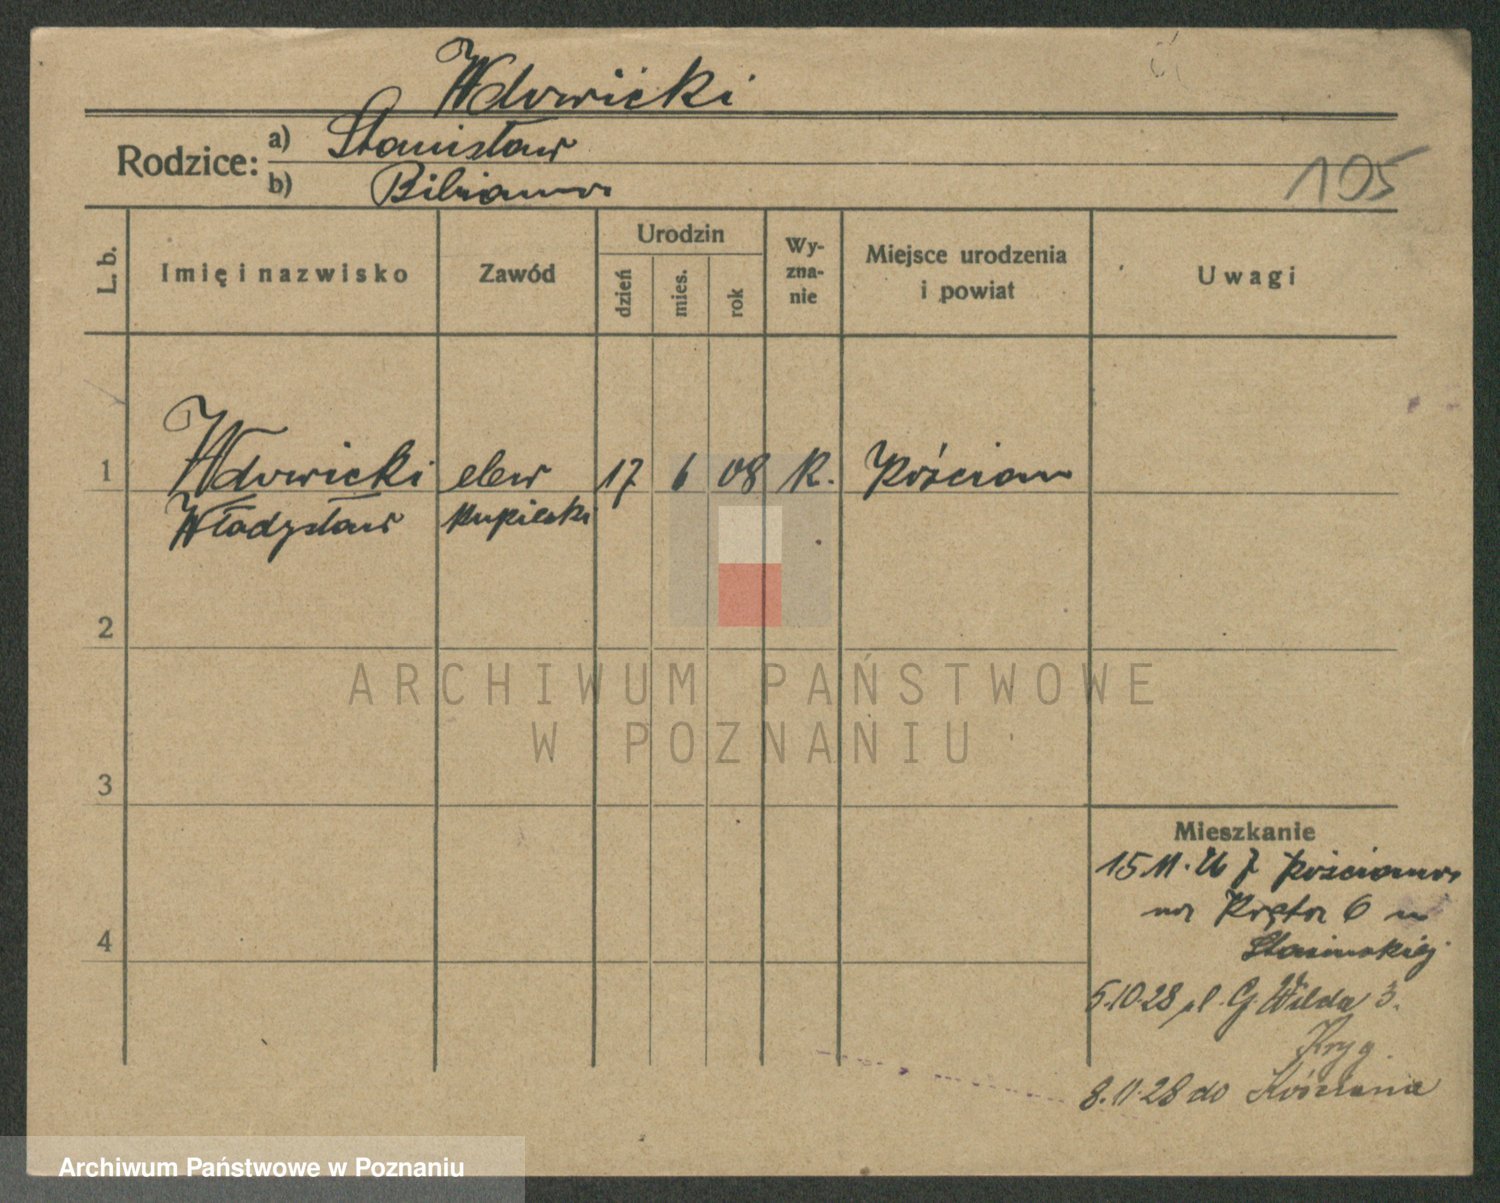 Wdowicki
Rodzice: a) Stanisław
b) Bibianna
105
L. b.
Imię i nazwisko
Zawód
Urodzin
dzień
mies.
rok
Wy-
zna-
nie
Miejsce urodzenia
i powiat
Uwagi
1 Wdowicki elew 17 6 08 K. Kościan
Władysław kupiecki
2
3
4
Mieszkanie
15.11.26 z Kościana
na Kręta 6 u
Stasińskiej
5.10.28 pl. G. Wilda 3.
Kryg.
8.11.28 do Kościana
ARCHIWUM PAŃSTWOWE
W POZNANIU
Archiwum Państwowe w Poznaniu